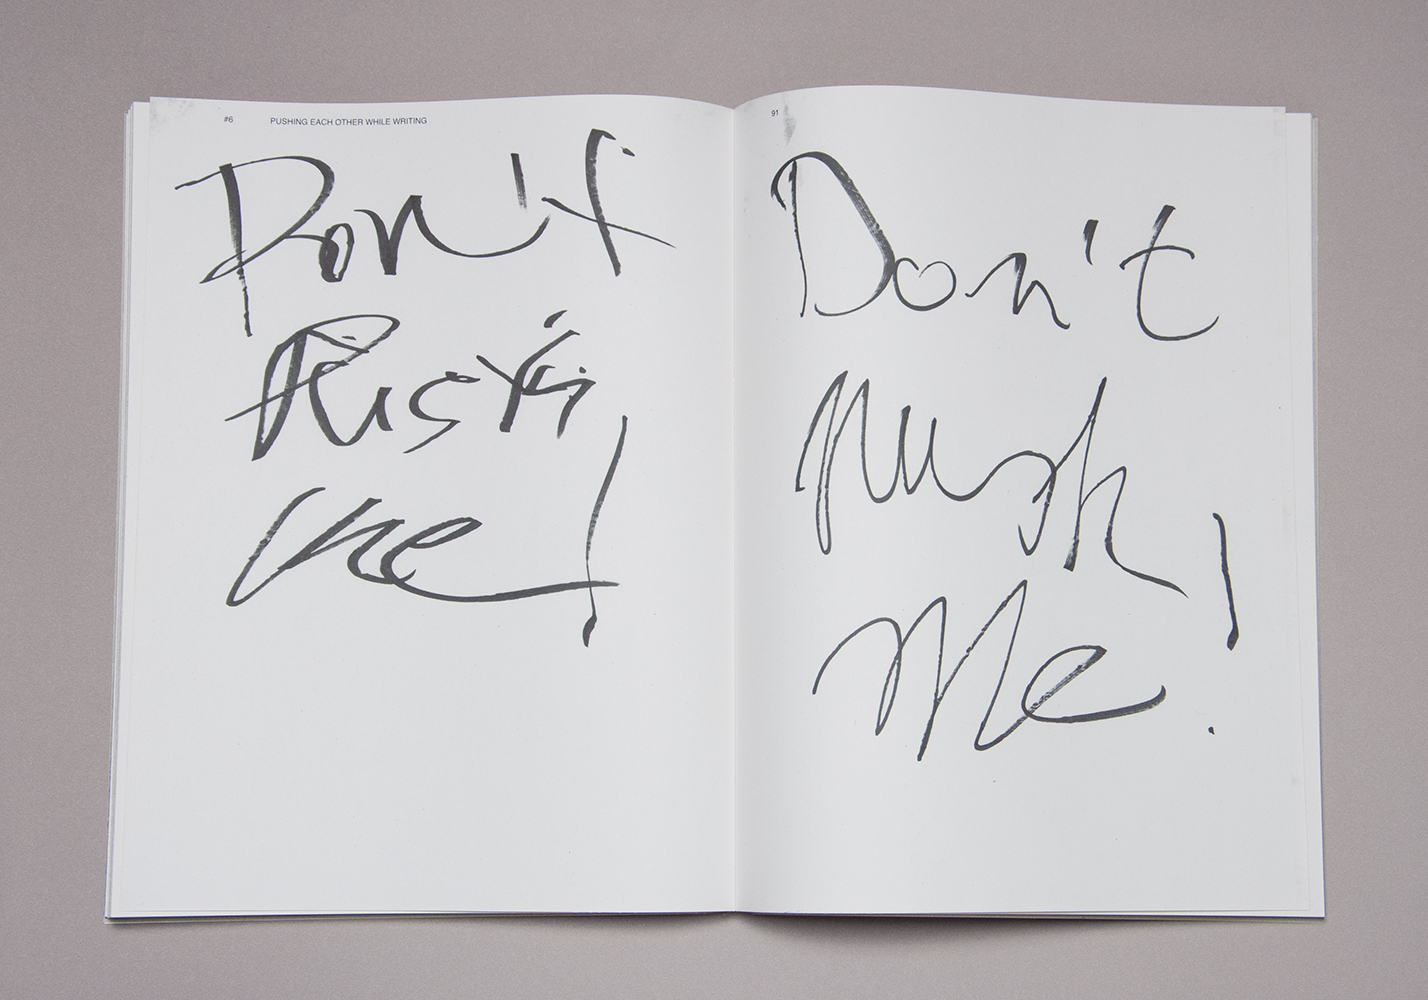 #6 PUSHING EACH OTHER WHILE WRITING
Don't
Push
me!
91
Don't
Push
Me!